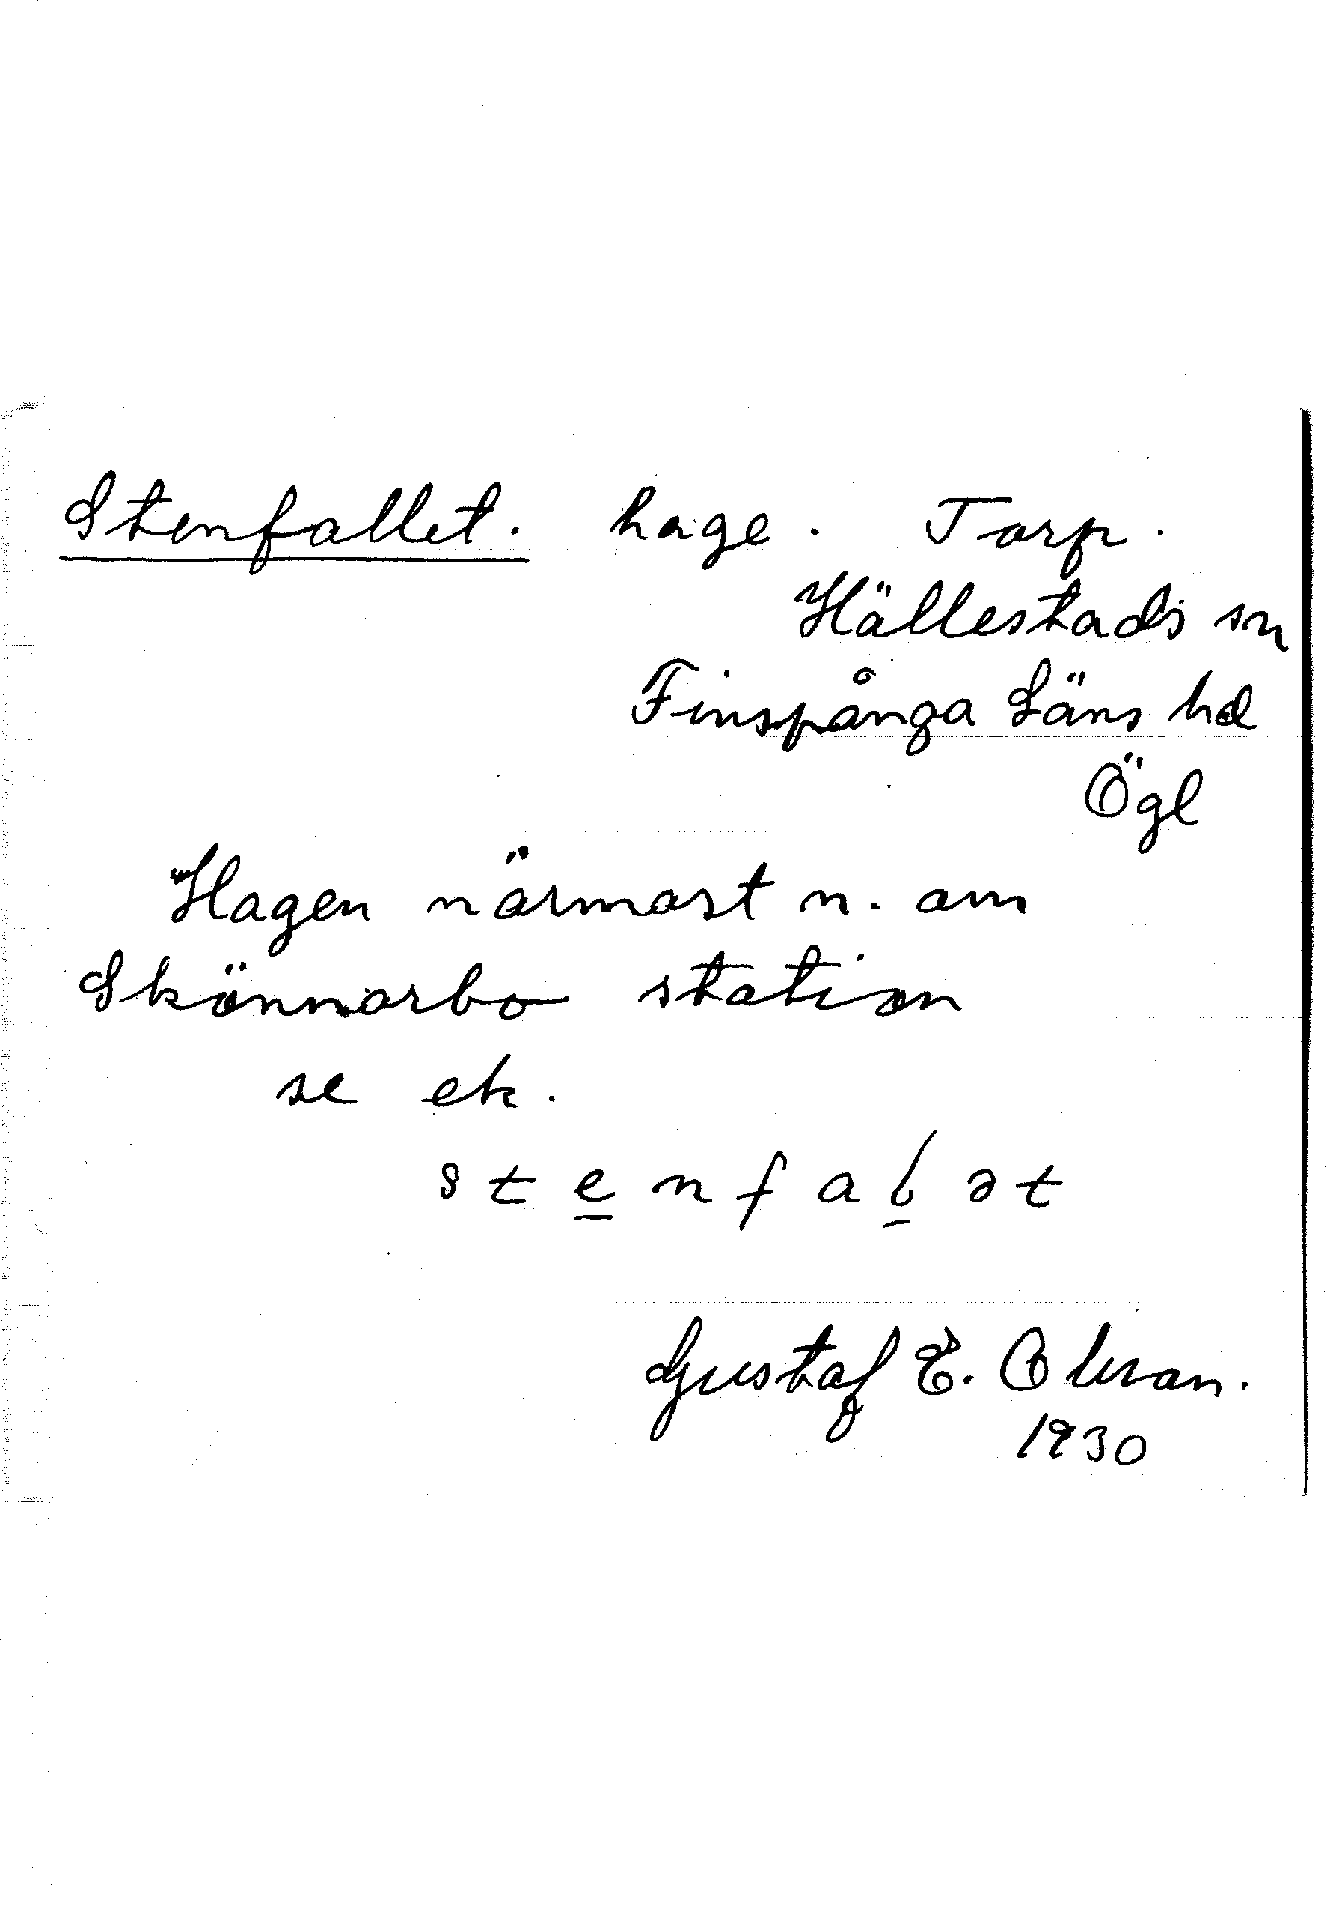 Stenfallet. hage. Torp.
Hällestads sn
Finspånga Läns hd
Ögl
Hagen närmast n. om
Skönnarbo station
se ek.
s t e n f a l ə t
Gustaf E. Olson.
1930